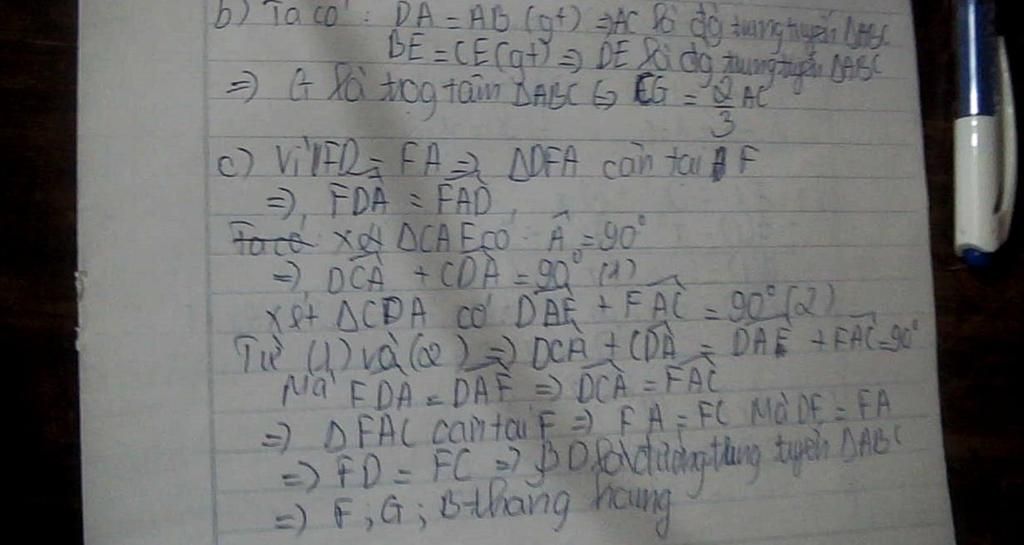 b) Ta có : DA = AB (gt) => AC là đg trung tuyến ΔABC
BE = CE (gt) => DE là đg trung tuyến ΔABC
=> G là trọg tâm ΔABC => CG = 2/3 AC
c) Vì FD = FA => ΔDFA cân tại F
=> FDA = FAD
Ta có xét ΔCAE có Â = 90°
=> DCA + CDA = 90° (1)
xét ΔCDA có DAF + FAC = 90° (2)
Từ (1) và (2) => DCA + CDA = DAF + FAC = 90°
Mà FDA = DAF => DCA = FAC
=> ΔFAC cân tại F => FA = FC Mà DF = FA
=> FD = FC => là đường trung tuyến ΔABC
=> F ; G ; B thẳng hàng